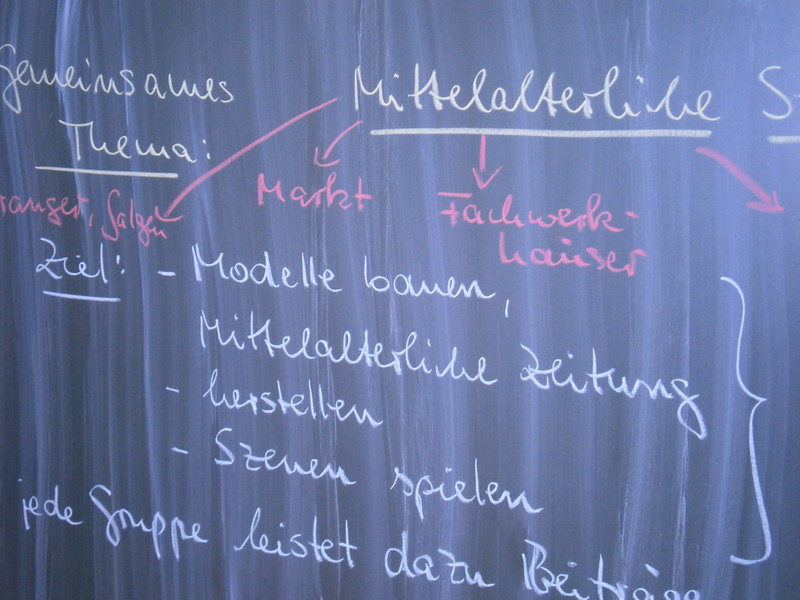 Gemeinsames Mittelalterliche S
Thema:
ranger, Galgen Markt Fachwerk-
häuser
Ziel: - Modelle bauen,
Mittelalterliche Zeitung
- herstellen
- Szenen spielen
jede Gruppe leistet dazu Beiträge